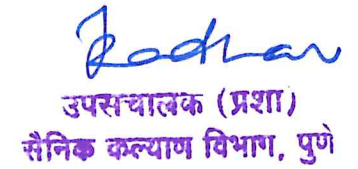 उपसंचालक (प्रशा)
सैनिक कल्याण विभाग, पुणे